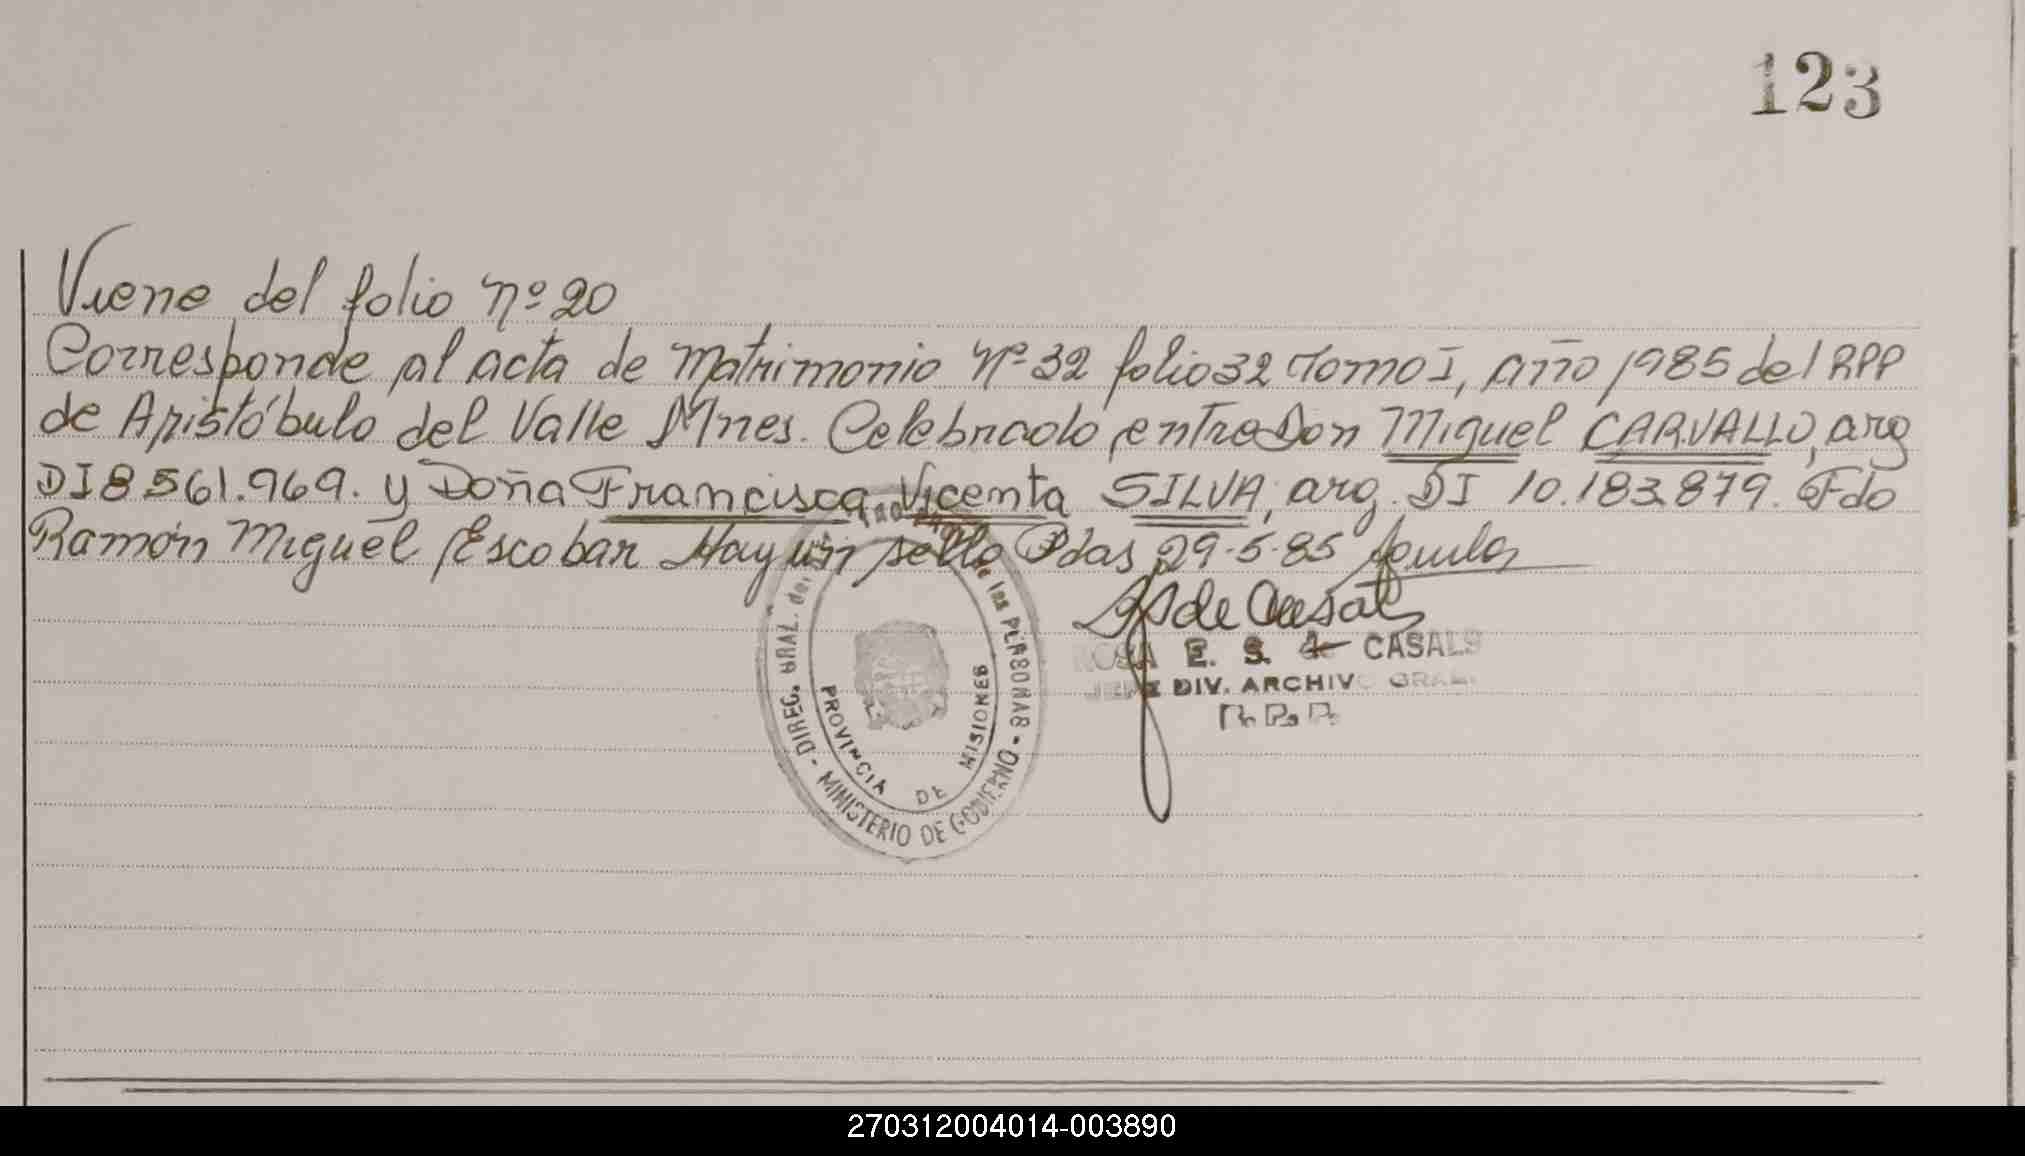 123
Viene del folio nº 20
Corresponde al acta de Matrimonio Nº 32 folio 32 Tomo I, año 1985 del RPP
de Aristóbulo del Valle Mnes. Celebrado entre Don Miguel CARVALLO, arg
DI 8561.969. y Doña Francisca Vicenta SILVA, arg. DI 10.183.879. Fdo
Ramón Miguel Escobar Hay un sello Pdas 29-5-85
de Casals
ROSA E. S. de CASALS
JEFE DIV. ARCHIVO GRAL.
R. P. P.
DIREC. GRAL. del de las PERSONAS - MINISTERIO DE GOBIERNO -
PROVINCIA DE MISIONES
270312004014-003890